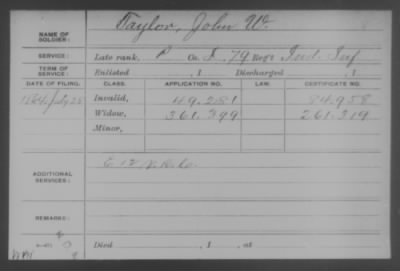 Taylor, John W.
NAME OF SOLDIER:
SERVICE: Late rank, P Co. I, 79 Reg't Ind. Inf
TERM OF SERVICE: Enlisted , 1 Discharged , 1
DATE OF FILING. CLASS. APPLICATION NO. LAW. CERTIFICATE NO.
1864 July 28 Invalid, 49.281 84.958
Widow, 361.399 261.319
Minor,
ADDITIONAL SERVICES:
REMARKS:
Died , 1 , at